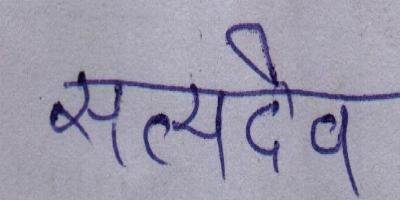 सत्यदेव